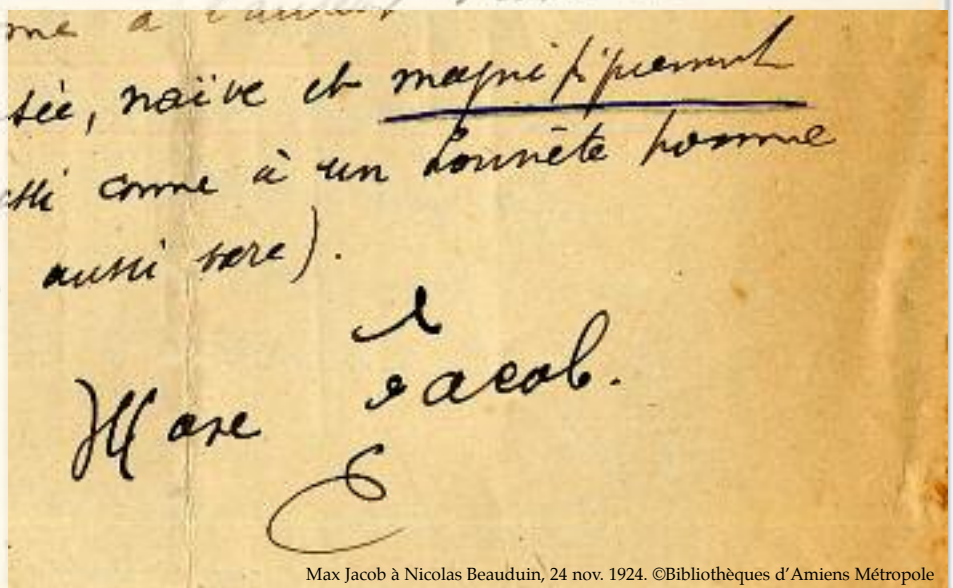 me à l'auteur
sée, naïve et magnifiquement
ssi comme à un honnête homme
aussi rare).
Max Jacob.
Max Jacob à Nicolas Beauduin, 24 nov. 1924. ©Bibliothèques d'Amiens Métropole